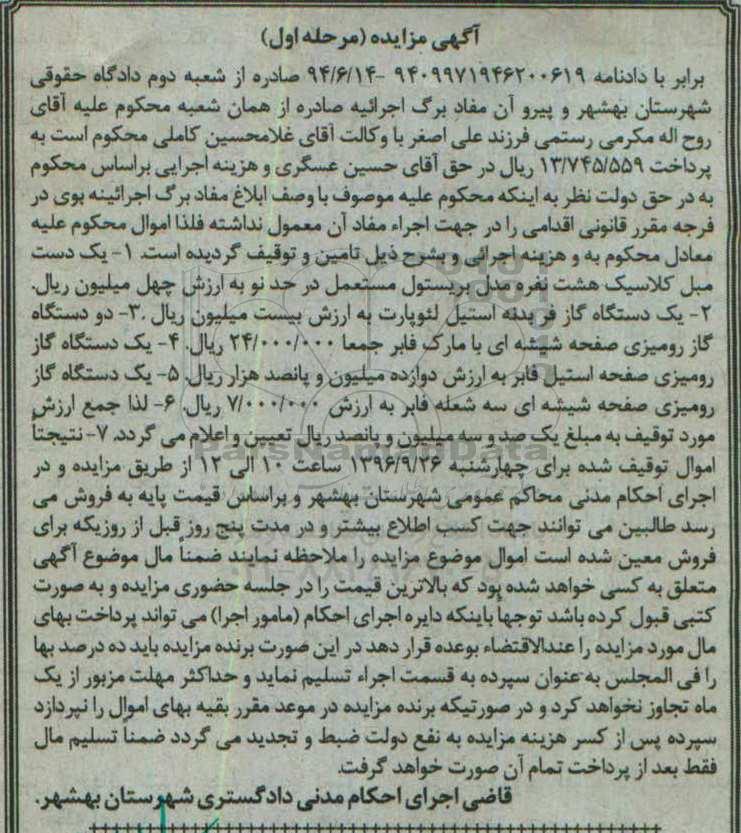 آگهی مزایده (مرحله اول)
برابر با دادنامه ۹۴۰۹۹۷۱۹۴۶۲۰۰۶۱۹ -۹۴/۶/۱۴ صادره از شعبه دوم دادگاه حقوقی
شهرستان بهشهر و پیرو آن مفاد برگ اجرائیه صادره از همان شعبه محکوم علیه آقای
روح اله مکرمی رستمی فرزند علی اصغر با وکالت آقای غلامحسین کاملی محکوم است به
پرداخت ۱۳/۷۴۵/۵۵۹ ریال در حق آقای حسین عسگری و هزینه اجرایی براساس محکوم
به در حق دولت نظر به اینکه محکوم علیه موصوف با وصف ابلاغ مفاد برگ اجرائینه بوی در
فرجه مقرر قانونی اقدامی را در جهت اجراء مفاد آن معمول نداشته فلذا اموال محکوم علیه
معادل محکوم به و هزینه اجرائی و بشرح ذیل تامین و توقیف گردیده است. ۱- یک دست
مبل کلاسیک هشت نفره مدل بریستول مستعمل در حد نو به ارزش چهل میلیون ریال.
۲- یک دستگاه گاز فر بدنه استیل لئوپارت به ارزش بیست میلیون ریال .۳- دو دستگاه
گاز رومیزی صفحه شیشه ای با مارک فابر جمعا ۲۴/۰۰۰/۰۰۰ ریال. ۴- یک دستگاه گاز
رومیزی صفحه استیل فابر به ارزش دوازده میلیون و پانصد هزار ریال. ۵- یک دستگاه گاز
رومیزی صفحه شیشه ای سه شعله فابر به ارزش ۷/۰۰۰/۰۰۰ ریال. ۶- لذا جمع ارزش
مورد توقیف به مبلغ یک صد و سه میلیون و پانصد ریال تعیین و اعلام می گردد. ۷- نتیجتاً
اموال توقیف شده برای چهارشنبه ۱۳۹۶/۹/۲۶ ساعت ۱۰ الی ۱۲ از طریق مزایده و در
اجرای احکام مدنی محاکم عمومی شهرستان بهشهر و براساس قیمت پایه به فروش می
رسد طالبین می توانند جهت کسب اطلاع بیشتر و در مدت پنج روز قبل از روزیکه برای
فروش معین شده است اموال موضوع مزایده را ملاحظه نمایند ضمناً مال موضوع آگهی
متعلق به کسی خواهد شده بود که بالاترین قیمت را در جلسه حضوری مزایده و به صورت
کتبی قبول کرده باشد توجهاً باینکه دایره اجرای احکام (مامور اجرا) می تواند پرداخت بهای
مال مورد مزایده را عندالاقتضاء بوعده قرار دهد در این صورت برنده مزایده باید ده درصد بها
را فی المجلس به عنوان سپرده به قسمت اجراء تسلیم نماید و حداکثر مهلت مزبور از یک
ماه تجاوز نخواهد کرد و در صورتیکه برنده مزایده در موعد مقرر بقیه بهای اموال را نپردازد
سپرده پس از کسر هزینه مزایده به نفع دولت ضبط و تجدید می گردد ضمناً تسلیم مال
فقط بعد از پرداخت تمام آن صورت خواهد گرفت.
قاضی اجرای احکام مدنی دادگستری شهرستان بهشهر.
ParsNamadData